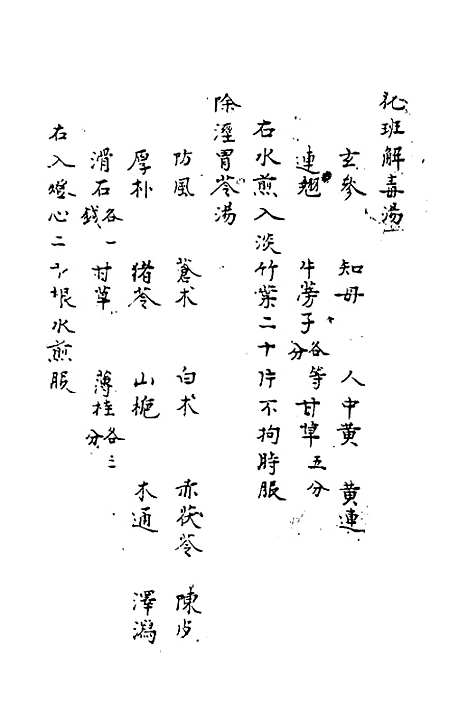 化班解毒湯
玄參 知母 人中黃 黃連
連翹 牛蒡子各等分 甘草五分
右水煎入淡竹葉二十片不拘時服
除溼胃苓湯
防風 蒼朮 白朮 赤茯苓 陳皮
厚朴 猪苓 山梔 木通 澤瀉
滑石各一錢 甘草 薄桂各三分
右入燈心二十根水煎服